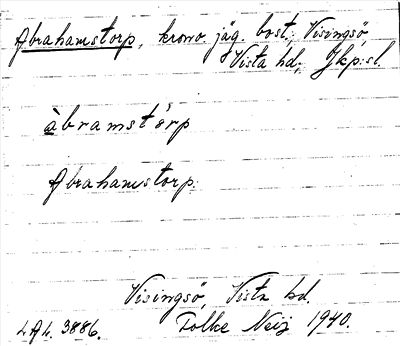 Abrahamstorp, krono. jäg. bost., Visingsö,
Vista hd., Jkp:sl.
àbramstèrp
Abrahamstorp.
Visingsö, Vista hd.
LAL. 3886. Folke Neij 1940.